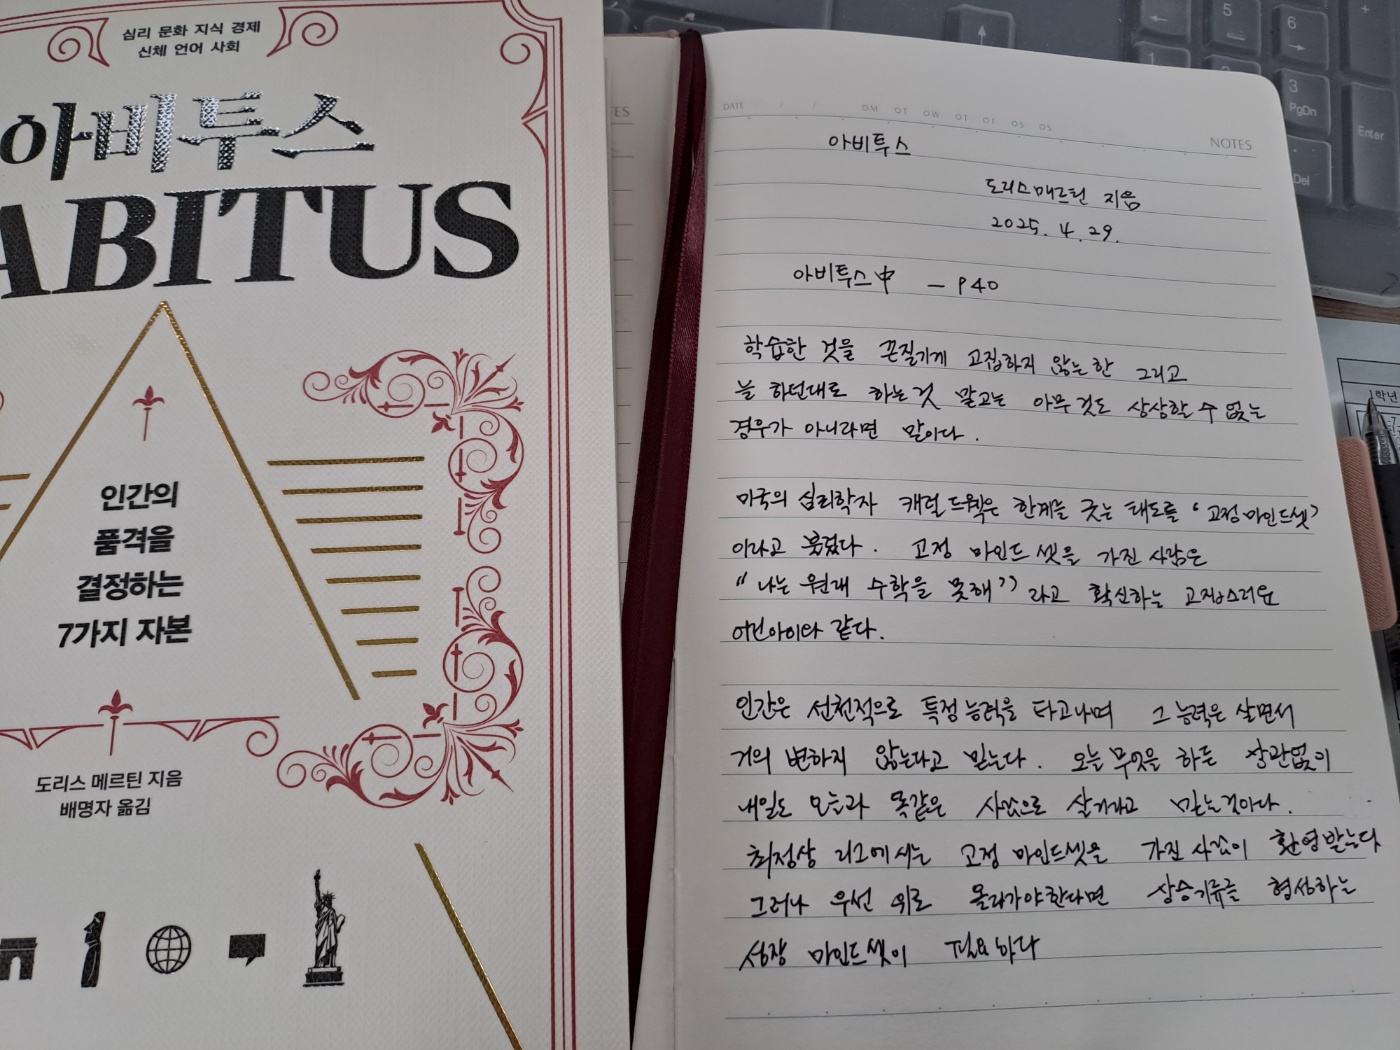 심리 문화 지식 경제
신체 언어 사회
아비투스
ABITUS
인간의
품격을
결정하는
7가지 자본
도리스 메르틴 지음
배명자 옮김
TES
DATE / /
NOTES
아비투스
도리스메르틴 지음
2025. 4. 29.
아비투스中 — P40
학습한 것을 끈질기게 고집하지 않는한 그리고
늘 하던대로 하는것 말고는 아무것도 상상할 수 없는
경우가 아니라면 말이다.
미국의 심리학자 캐럴드웩은 한계를 긋는 태도를 '고정마인드셋'
이라고 불렀다. 고정 마인드셋을 가진 사람은
"나는 원래 수학을 못해" 라고 확신하는 고집스러운
어린아이와 같다.
인간은 선천적으로 특정능력을 타고나며 그 능력은 살면서
거의 변하지 않는다고 믿는다. 오늘 무엇을 하든 상관없이
내일도 오늘과 똑같은 사람으로 살거라고 믿는것이다.
최정상 리그에서는 고정 마인드셋을 가진 사람이 환영받는다
그러나 우선 위로 올라가야한다면 상승기류를 형성하는
성장 마인드셋이 필요하다
5
6
1
2
3
PgDn
Enter
Del
+
1학년